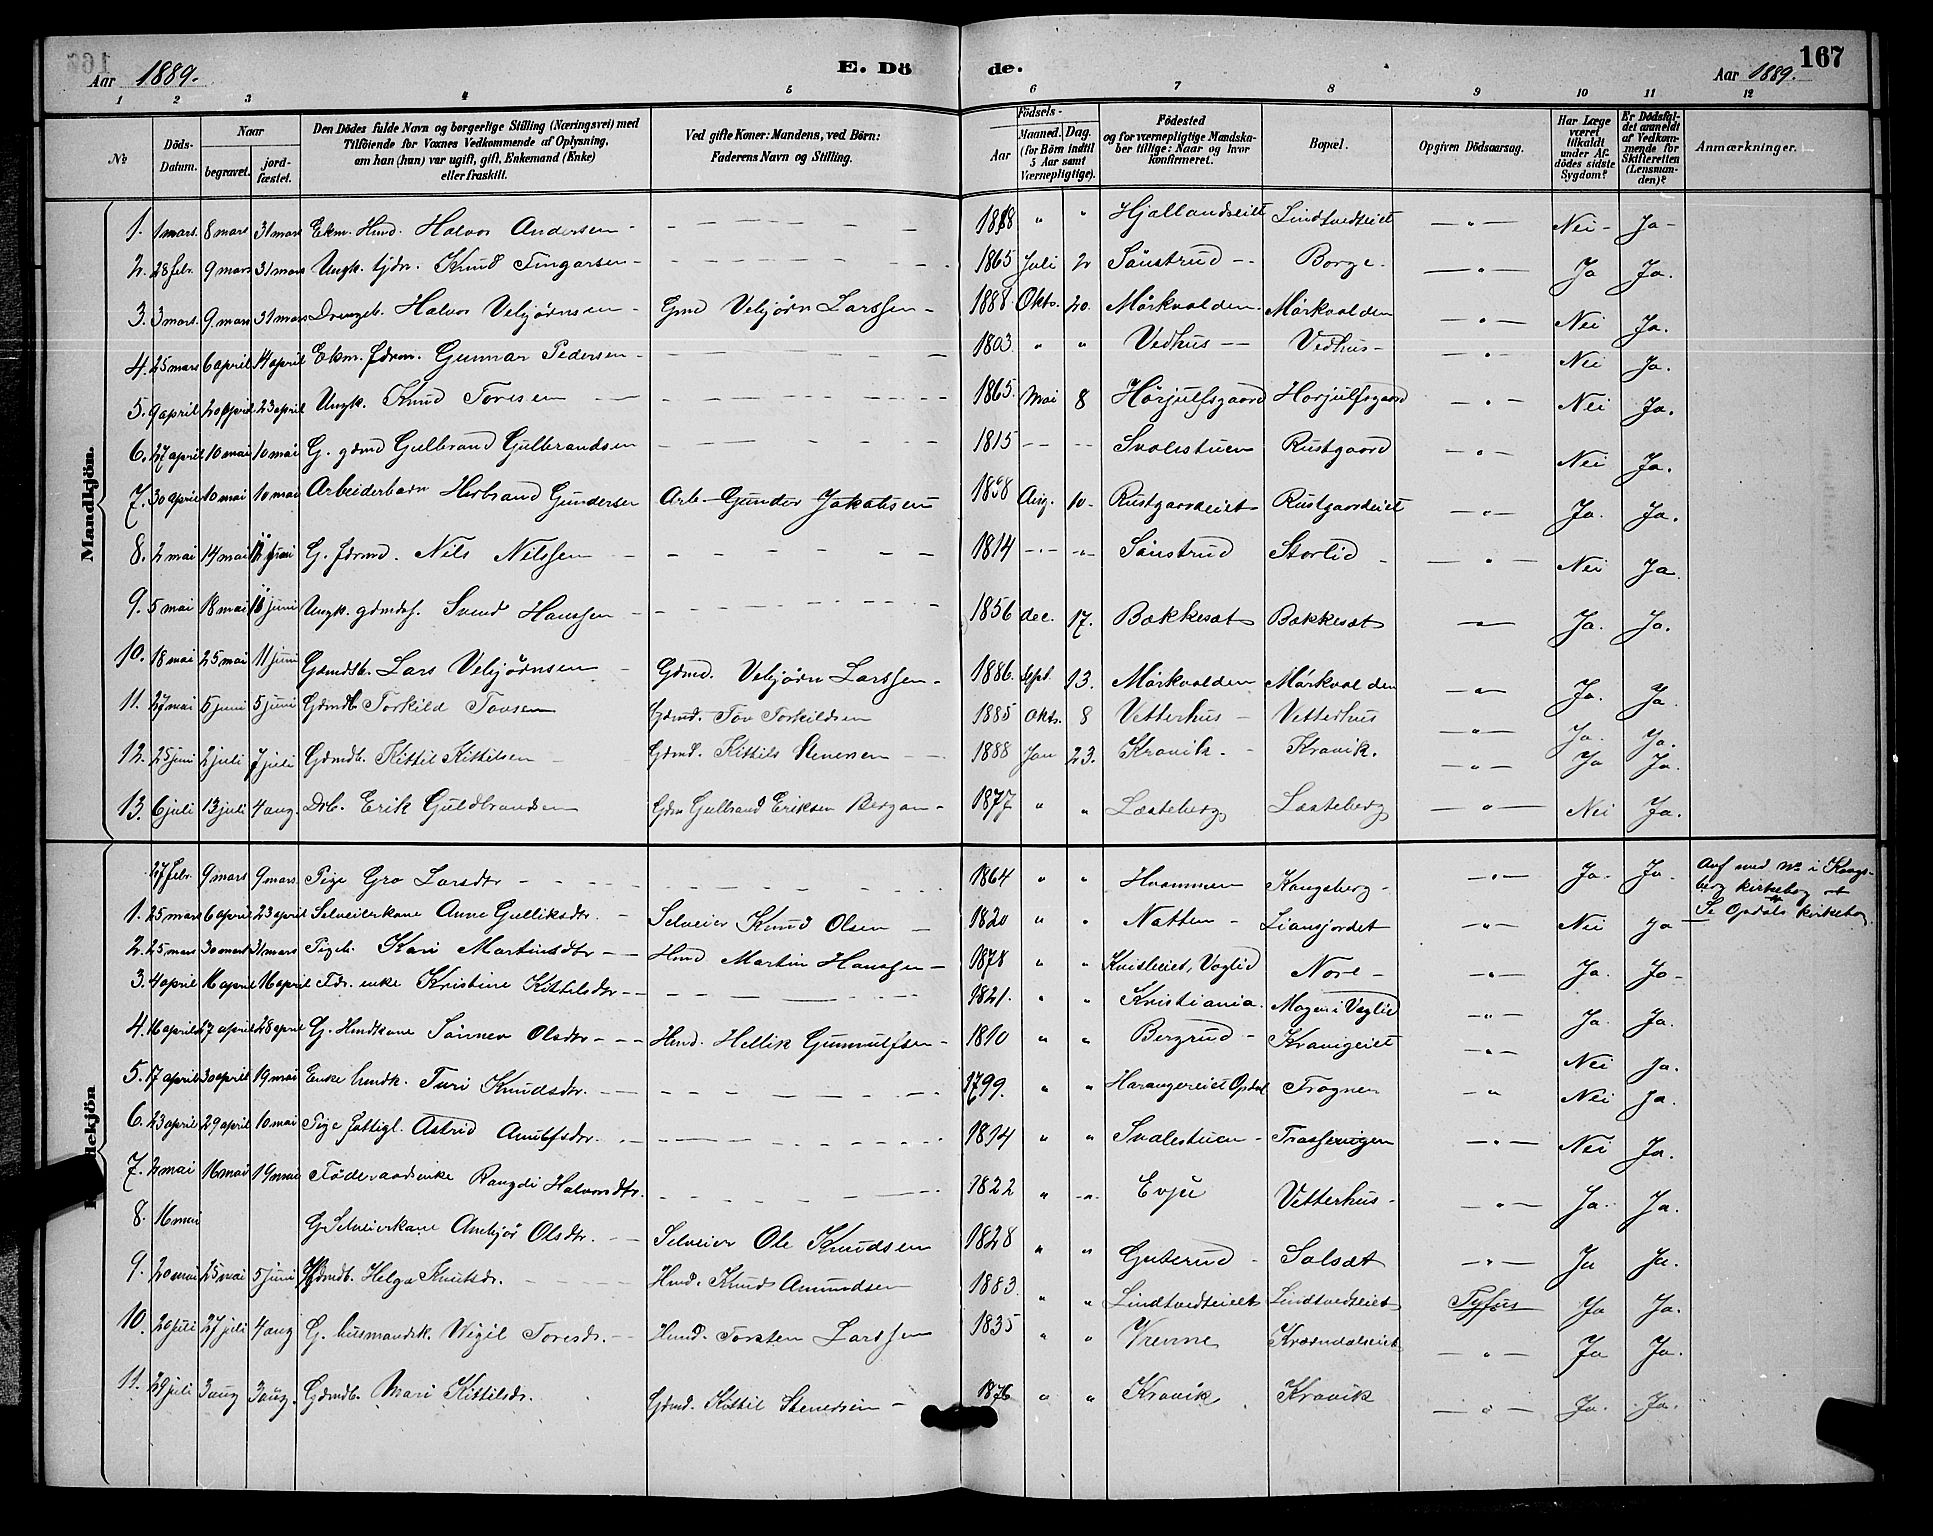 Aar 1889. E. Döde. Aar 1889. 167
1 2 3 4 5 6 7 8 9 10 11 12
No
Döds-Datum.
Naar begravet. jordfæstet.
Den Dödes fulde Navn og borgerlige Stilling (Næringsvei) med Tilföiende for Voxnes Vedkommende af Oplysning, om han (hun) var ugift, gift, Enkemand (Enke) eller fraskilt.
Ved gifte Koner: Mandens, ved Börn: Faderens Navn og Stilling.
Födsels-
Aar Maaned. Dag. (for Börn indtil 5 Aar samt Værnepligtige).
Födested og for værnepligtige Mandskaber tillige: Naar og hvor konfirmeret.
Bopæl.
Opgiven Dödsaarsag.
Har Læge været tilkaldt under Afdödes sidste Sygdom?
Er Dödsfaldet anmeldt af Vedkommende for Skifteretten (Lensmanden)?
Anmærkninger.
Mandkjön.
1. 1 mars. 8 mars 31 mars Ekm. Hmd. Halvor Andersen - 1818 " " Hjallandseiet Lindtvedteiet — " — Nei - Ja -
2. 28 febr. 9 mars 31 mars Ungk. tjdr. Knud Fingarsen - 1865 Juli 2 Sönstrud - Borge. — " — Ja Ja.
3. 3 mars. 9 mars 31 mars Drengeb. Halvor Vebjørnsen - Gmd Vebjørn Larssen - 1888. Okto. 20. Mörkvolden. Mörkvolden — " — Nei Ja.
4. 25 mars 6 april 14 april Ekm. fdrm. Gunnar Pedersen - 1803 " " Vedhus — Vedhus - — " — Nei Ja.
5. 9 april 20 april 23 april Ungk. Knud Toresen 1865. Mai 8 Hörjulfsgaard Horjulfsgaard — " — Nei Ja.
6. 27 april 10 mai 10 mai G. gdmd Gulbrand Gulbrandsen 1815 Svalestuen Rustgaard — " — Nei Ja.
7. 30 april 10 mai 10 mai Arbeiderbarn Herbrand Gundersen Arb - Gunder Jakobsen Aug. 10. Rustgaardeiet Rustgaardeiet — " — Ja. Ja.
8. 2 mai 14 mai juni G. fdrmd. Nils Nilssen 1814 Sönstrud Storlid — " — Nei Ja.
9. 5 mai 18 mai juni Ungk. gdmds. Svend Hanssen - 1856 dec. 17. Bakkesæt Bakkesæt — " — Ja. Ja.
10. 18 mai 25 mai 11 juni Gdmdsb. Lars Vebjørnsen Gdmd. Vebjørn Larssen - 1886. Sept. 13. Mörkvolden Mörkvolden — " — Ja. Ja
11. 27 mai 5 juni 5 juni Gdmdb. Torkild Tovsen Gdmd. Tov Torkildsen 1885 Okto. 8 Vetterhus - Vetterhus — " — Ja. Ja.
12. 25 juni 2 juli 7 juli Gdmdb. Kittil Kittilsen Gdmd. Kittils Stenersen 1888 Jan 23. Kravik - Kravik. — " — Ja Ja.
13. 6 juli 13 juli 4 aug. Drb. Erik Guldbrandsen Gdm Gulbrand Eriksen Bergan - 1877 " " Læsteberg Læsteberg — " — Nei Ja.
dekjön
27 febr. 9 mars 9 mars. Pige Gro Larsdtr - 1864 " " Hvammen Kongsberg - — " — Ja. Ja. Anf med No i Kongsberg kirkebog
1. 25 mars 6 april 23 april Selveierkone Anne Gulliksdtr. - Selveier Knud Olsen - 1820 " " Natten - Liansjordet — " — Nei Ja Se Opdals kirkebog
2. 25 mars 30 mars 31 mars Pigeb. Kari Martinsdtr - Hmd Martin Hanssen - 1878 " " Kvisleiet, Væglid Nore - — " — Ja. Ja -
3. 4 april 16 april 16 april Fdr. enke Kristine Kittilsdtr - 1821. " " Kristiania. Mogen i Væglid — " — Ja. Ja.
4. 16 april 27 april 28 april G. Hmdkone Sönnev Olsdtr - Hmd. Hellik Gunnulfsen - 1810 " " Bergrud - Kravigeiet — " — Nei Ja.
5. 17 april 30 april 19 mai Enke hmdk. Turi Knudsdtr. - 1799. " " Harangereiet Opdal Trognen " Nei Ja.
6. 23 april 29 april 10 mai Pige fattigl. Astrid 1814 " " Svalestuen - — " — Nei Ja.
7. 2 mai 16 mai 19 mai Föderaadsenke Rangdi Halvorsdtr. 1822 " " Evju Vetterhus - — " — Ja. Ja.
8. 16 mai G Selveierkone Ambjör Olsdtr. - Selveier Ole Knudsen 1828 " " Guterud - Solsæt — " — Ja Ja.
9. 20 mai 25 mai 5 juni Helga Knutsdr. Hmd. Knud Amundsen 1883 " " Lindtvedteiet Lindtvedteiet Tyfus Ja Ja.
10. 20 juli 27 juli 4 aug G. husmandsk. Wigil Toresdr. - Hmd. Torsten Larssen 1835 " " Vrenne — " — Ja Ja.
11. 29 juli 3 aug 3 aug. Gdmdb. Mari Kittilsdr. Gdmd. Kittil Stenersen - 1876 " " Kravik Kravik — " — Ja. Ja.